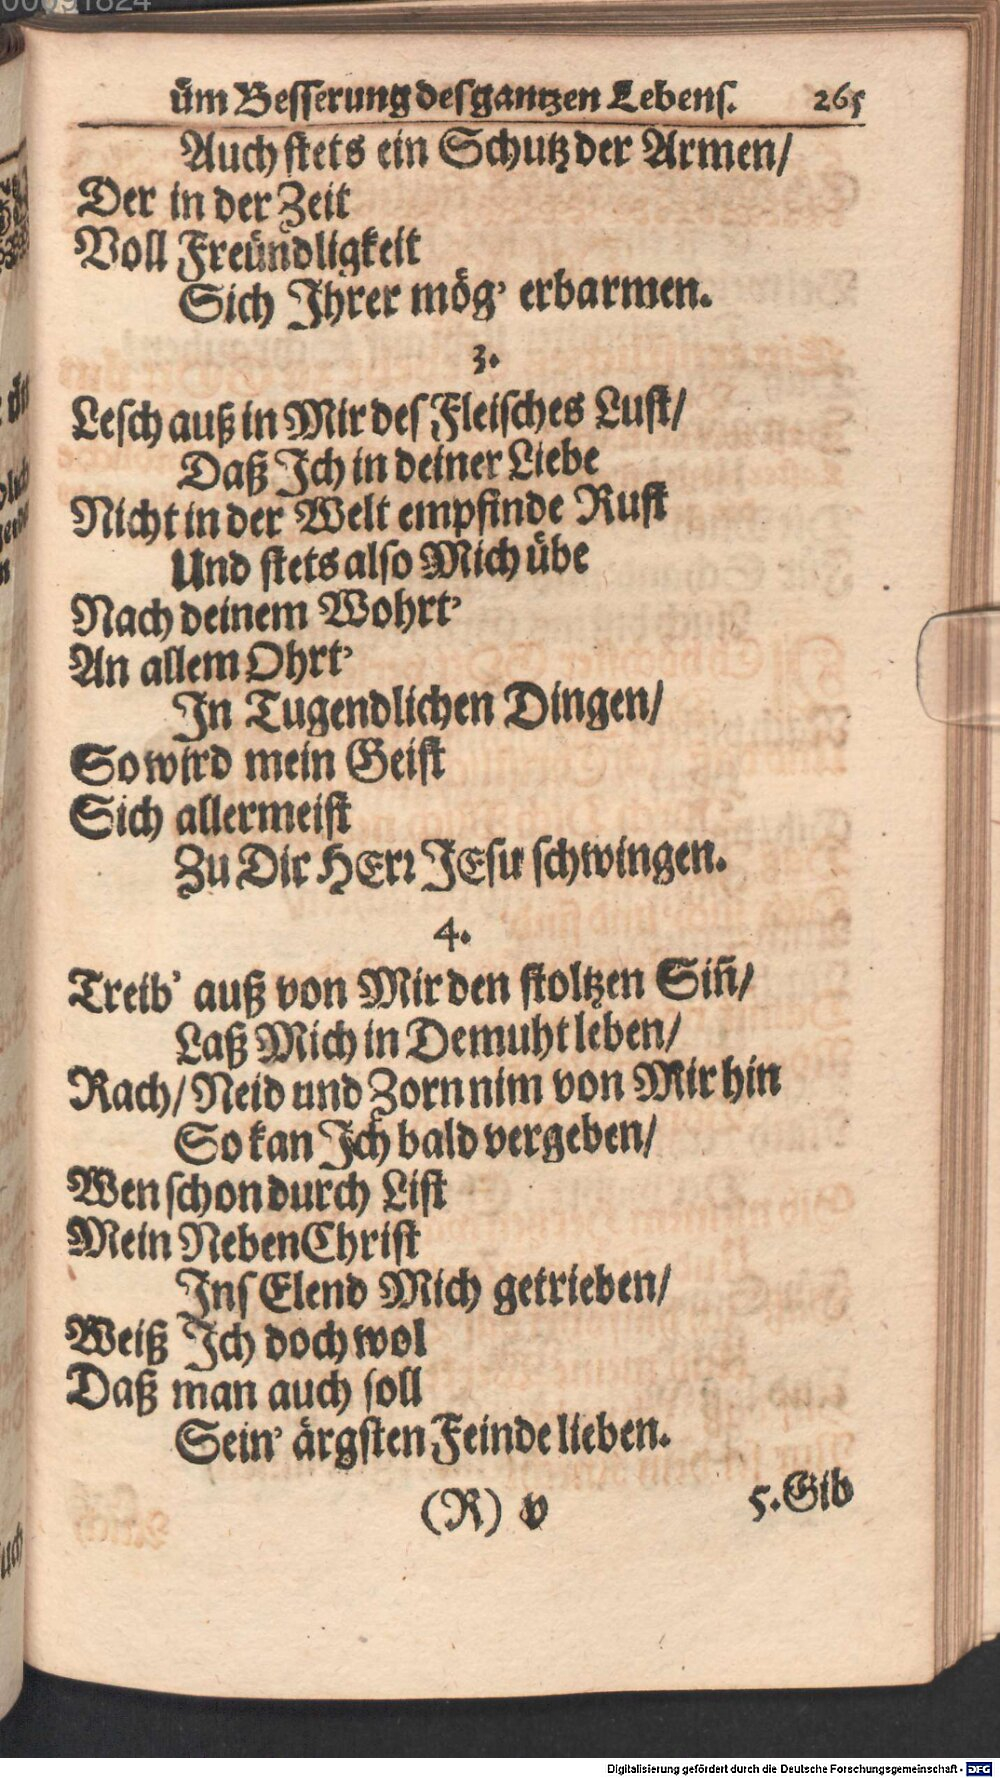 üm Besserung des gantzen Lebens. 265
Auch stets ein Schutz der Armen/
Der in der Zeit
Voll Freündligkeit
Sich Ihrer mög' erbarmen.
3.
Lesch auß in Mir des Fleisches Lust/
Daß Ich in deiner Liebe
Nicht in der Welt empfinde Rust
Und stets also Mich übe
Nach deinem Wohrt'
An allem Ohrt'
In Tugendlichen Dingen/
So wird mein Geist
Sich allermeist
Zu Dir HErr JEsu schwingen.
4.
Treib' auß von Mir den stoltzen Sin̄/
Laß Mich in Demuht leben/
Rach/ Neid und Zorn nim von Mir hin
So kan Ich bald vergeben/
Wen schon durch List
Mein NebenChrist
Ins Elend Mich getrieben/
Weiß Ich doch wol
Daß man auch soll
Sein' ärgsten Feinde lieben.
(R) v 5. Gib
Digitalisierung gefördert durch die Deutsche Forschungsgemeinschaft - DFG